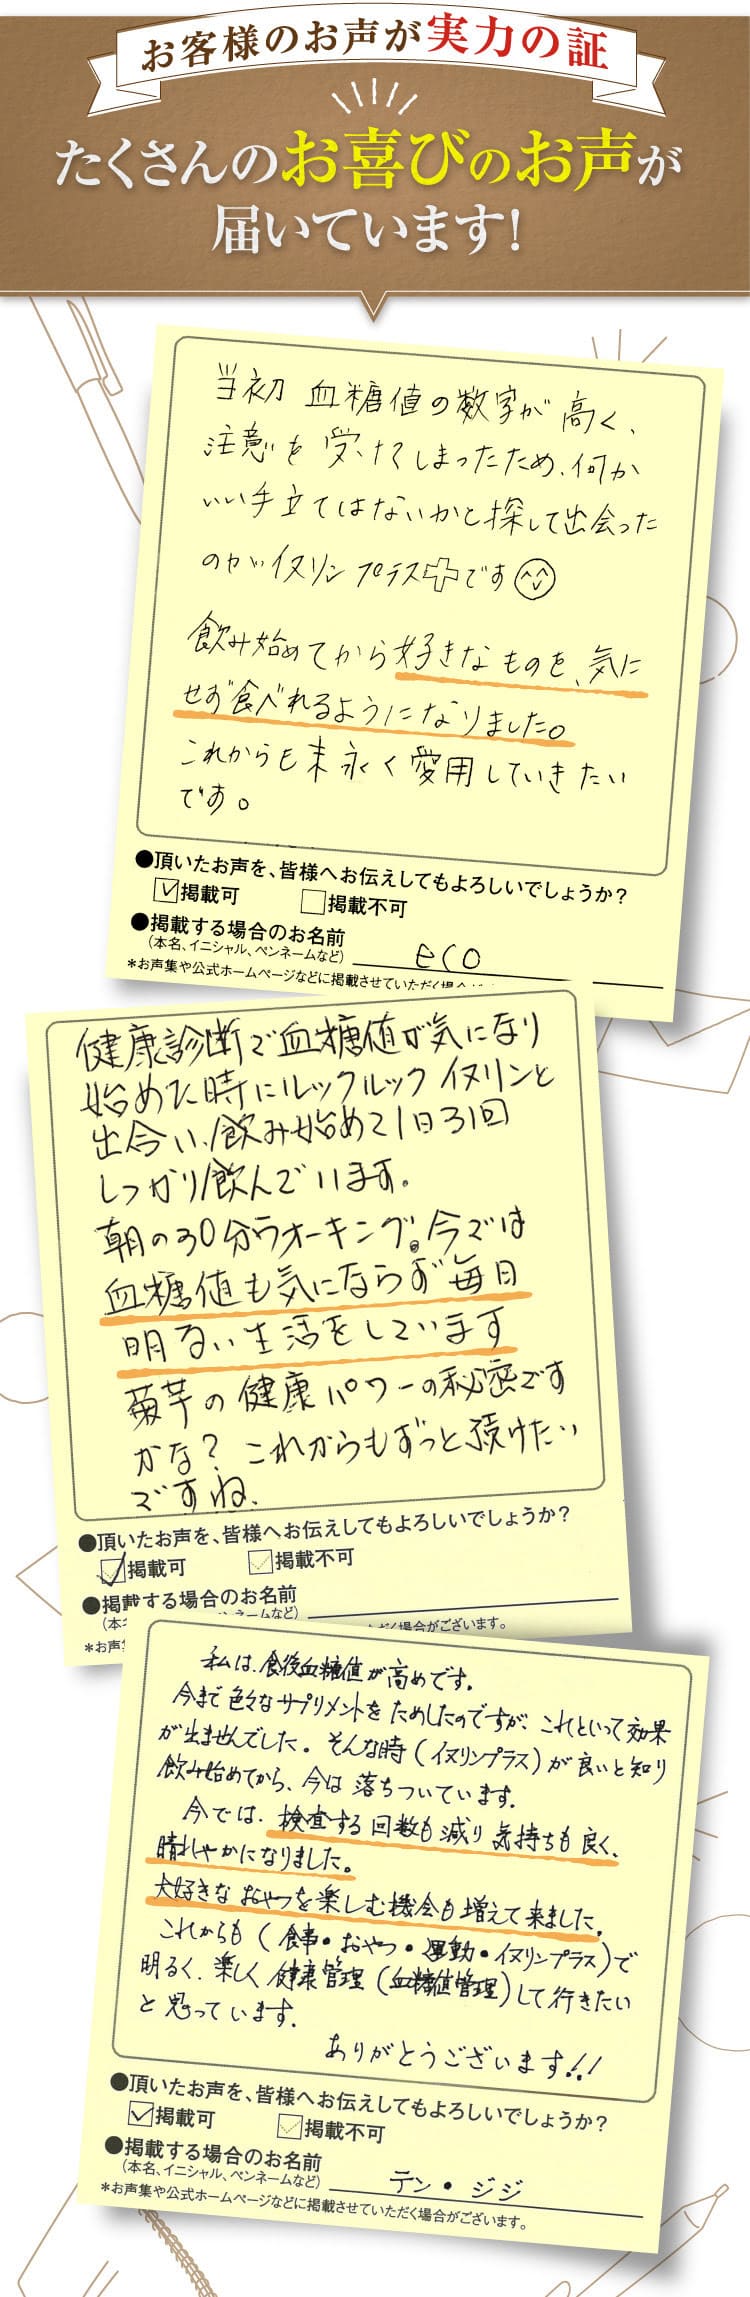 お客様のお声が実力の証
たくさんのお喜びのお声が
届いています!
当初 血糖値の数字が高く、
注意を受けてしまったため、何か
いい手立てはないかと探して出会った
のがイヌリンプラス➕です
飲み始めてから好きなものを、気に
せず食べれるようになりました。
これからも末永く愛用していきたい
です。
●頂いたお声を、皆様へお伝えしてもよろしいでしょうか?
掲載可 掲載不可
●掲載する場合のお名前
(本名、イニシャル、ペンネームなど) eco
*お声集や公式ホームページなどに掲載させていただく場合が
健康診断で血糖値が気になり
始めた時にルックルック イヌリンと
出合い、飲み始めて1日31回
しっかり飲んでいます。
朝の30分ウオーキング。今では
血糖値も気にならず毎日
明るい生活をしています
菊芋の健康パワーの秘密です
かな? これからもずっと、頂けたい
ですね、
●頂いたお声を、皆様へお伝えしてもよろしいでしょうか?
掲載可 掲載不可
●掲載する場合のお名前
私は、食後血糖値が高めです。
今まで色々なサプリメントをためしたのですが、これといって効果
が出ませんでした。そんな時(イヌリンプラス)が良いと知り
飲み始めてから、今は落ちついています。
今では、検査する回数も減り気持ちも良く、
晴れやかになりました。
大好きなおやつを楽しむ機会も増えて来ました。
これからも(食事・おやつ・運動・イヌリンプラス)で
明るく、楽しく健康管理(血糖値管理)して行きたい
と思っています。
ありがとうございます!!
●頂いたお声を、皆様へお伝えしてもよろしいでしょうか?
掲載可 掲載不可
●掲載する場合のお名前
(本名、イニシャル、ペンネームなど) テン・ジジ
*お声集や公式ホームページなどに掲載させていただく場合がございます。